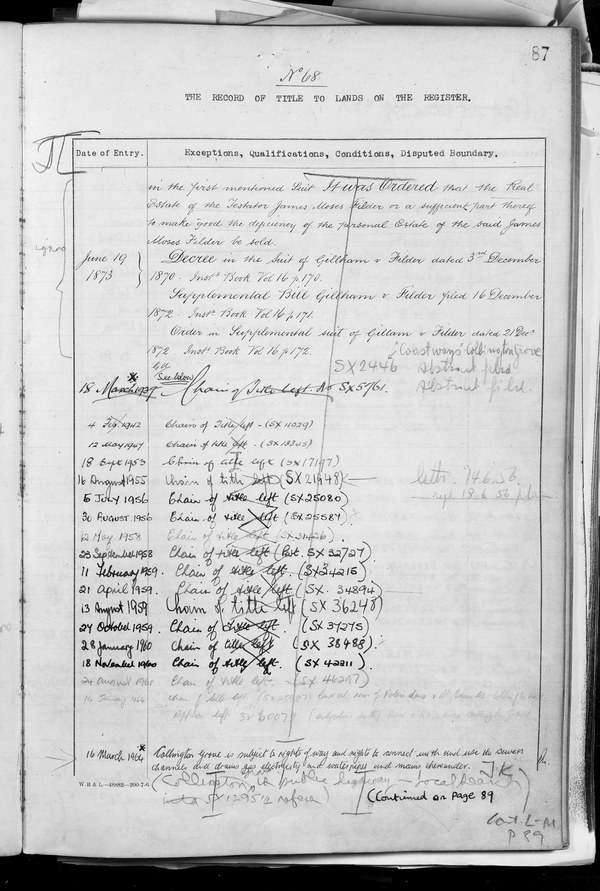 87
No 68
THE RECORD OF TITLE TO LANDS ON THE REGISTER.
Date of Entry. Exceptions, Qualifications, Conditions, Disputed Boundary.
in the first mentioned Suit It was Ordered that the Real
Estate of the Testator James Moses Filder or a sufficient part thereof
to make good the deficiency of the personal Estate of the said James
Moses Filder be sold.
June 19 1873 Decree in the Suit of Gillham v Filder dated 3rd December
1870. Inst: Book Vol 16 p 170.
Supplemental Bill Gillham v Filder filed 16 December
1872. Inst: Book Vol 16 p 171.
Order in Supplemental suit of Gillam v Filder dated 21 Decr
1872. Inst: Book Vol 16 p. 172.
"Coastways" Collington Grove
SX2446 Abstract filed
18 March 1937 (See below) Chain of Title left. No SX5761. Abstract filed.
4 Feb. 1942 Chain of Title left - (SX 11029)
12 May 1947 Chain of title left - (SX 13345)
18 Sept 1953 Chain of title left (SX 17197)
16 August 1955 Chain of title left (SX 21948)
5 July 1956 Chain of title left (SX25080)
30 August 1956 Chain of title left (SX25587)
12 May 1958 Chain of title left (SX31426)
23 September 1958 Chain of title left (Pat. SX 32727)
11 February 1959. Chain of title left. (SX34215)
21 April 1959. Chain of title left (SX. 34894)
13 August 1959 Chain of title left (SX 36248)
27 October 1959. Chain of title left. (SX 37275)
28 January 1960 Chain of title left (SX 38488).
18 November 1960 Chain of title left. (SX 42211).
24 August 1961 Chain of title left. (SX 46297)
chain of title left
left SX 50071
16 March 1964 Collington Grove is subject to rights of way and rights to connect with and use the sewers
channels and drains gas electricity and waterpipes and mains thereunder. JK
W B & L
(Collington is public highway - Local Search
SX129512 refers)
(Continued on Page 89
Cont. L-M
P 89